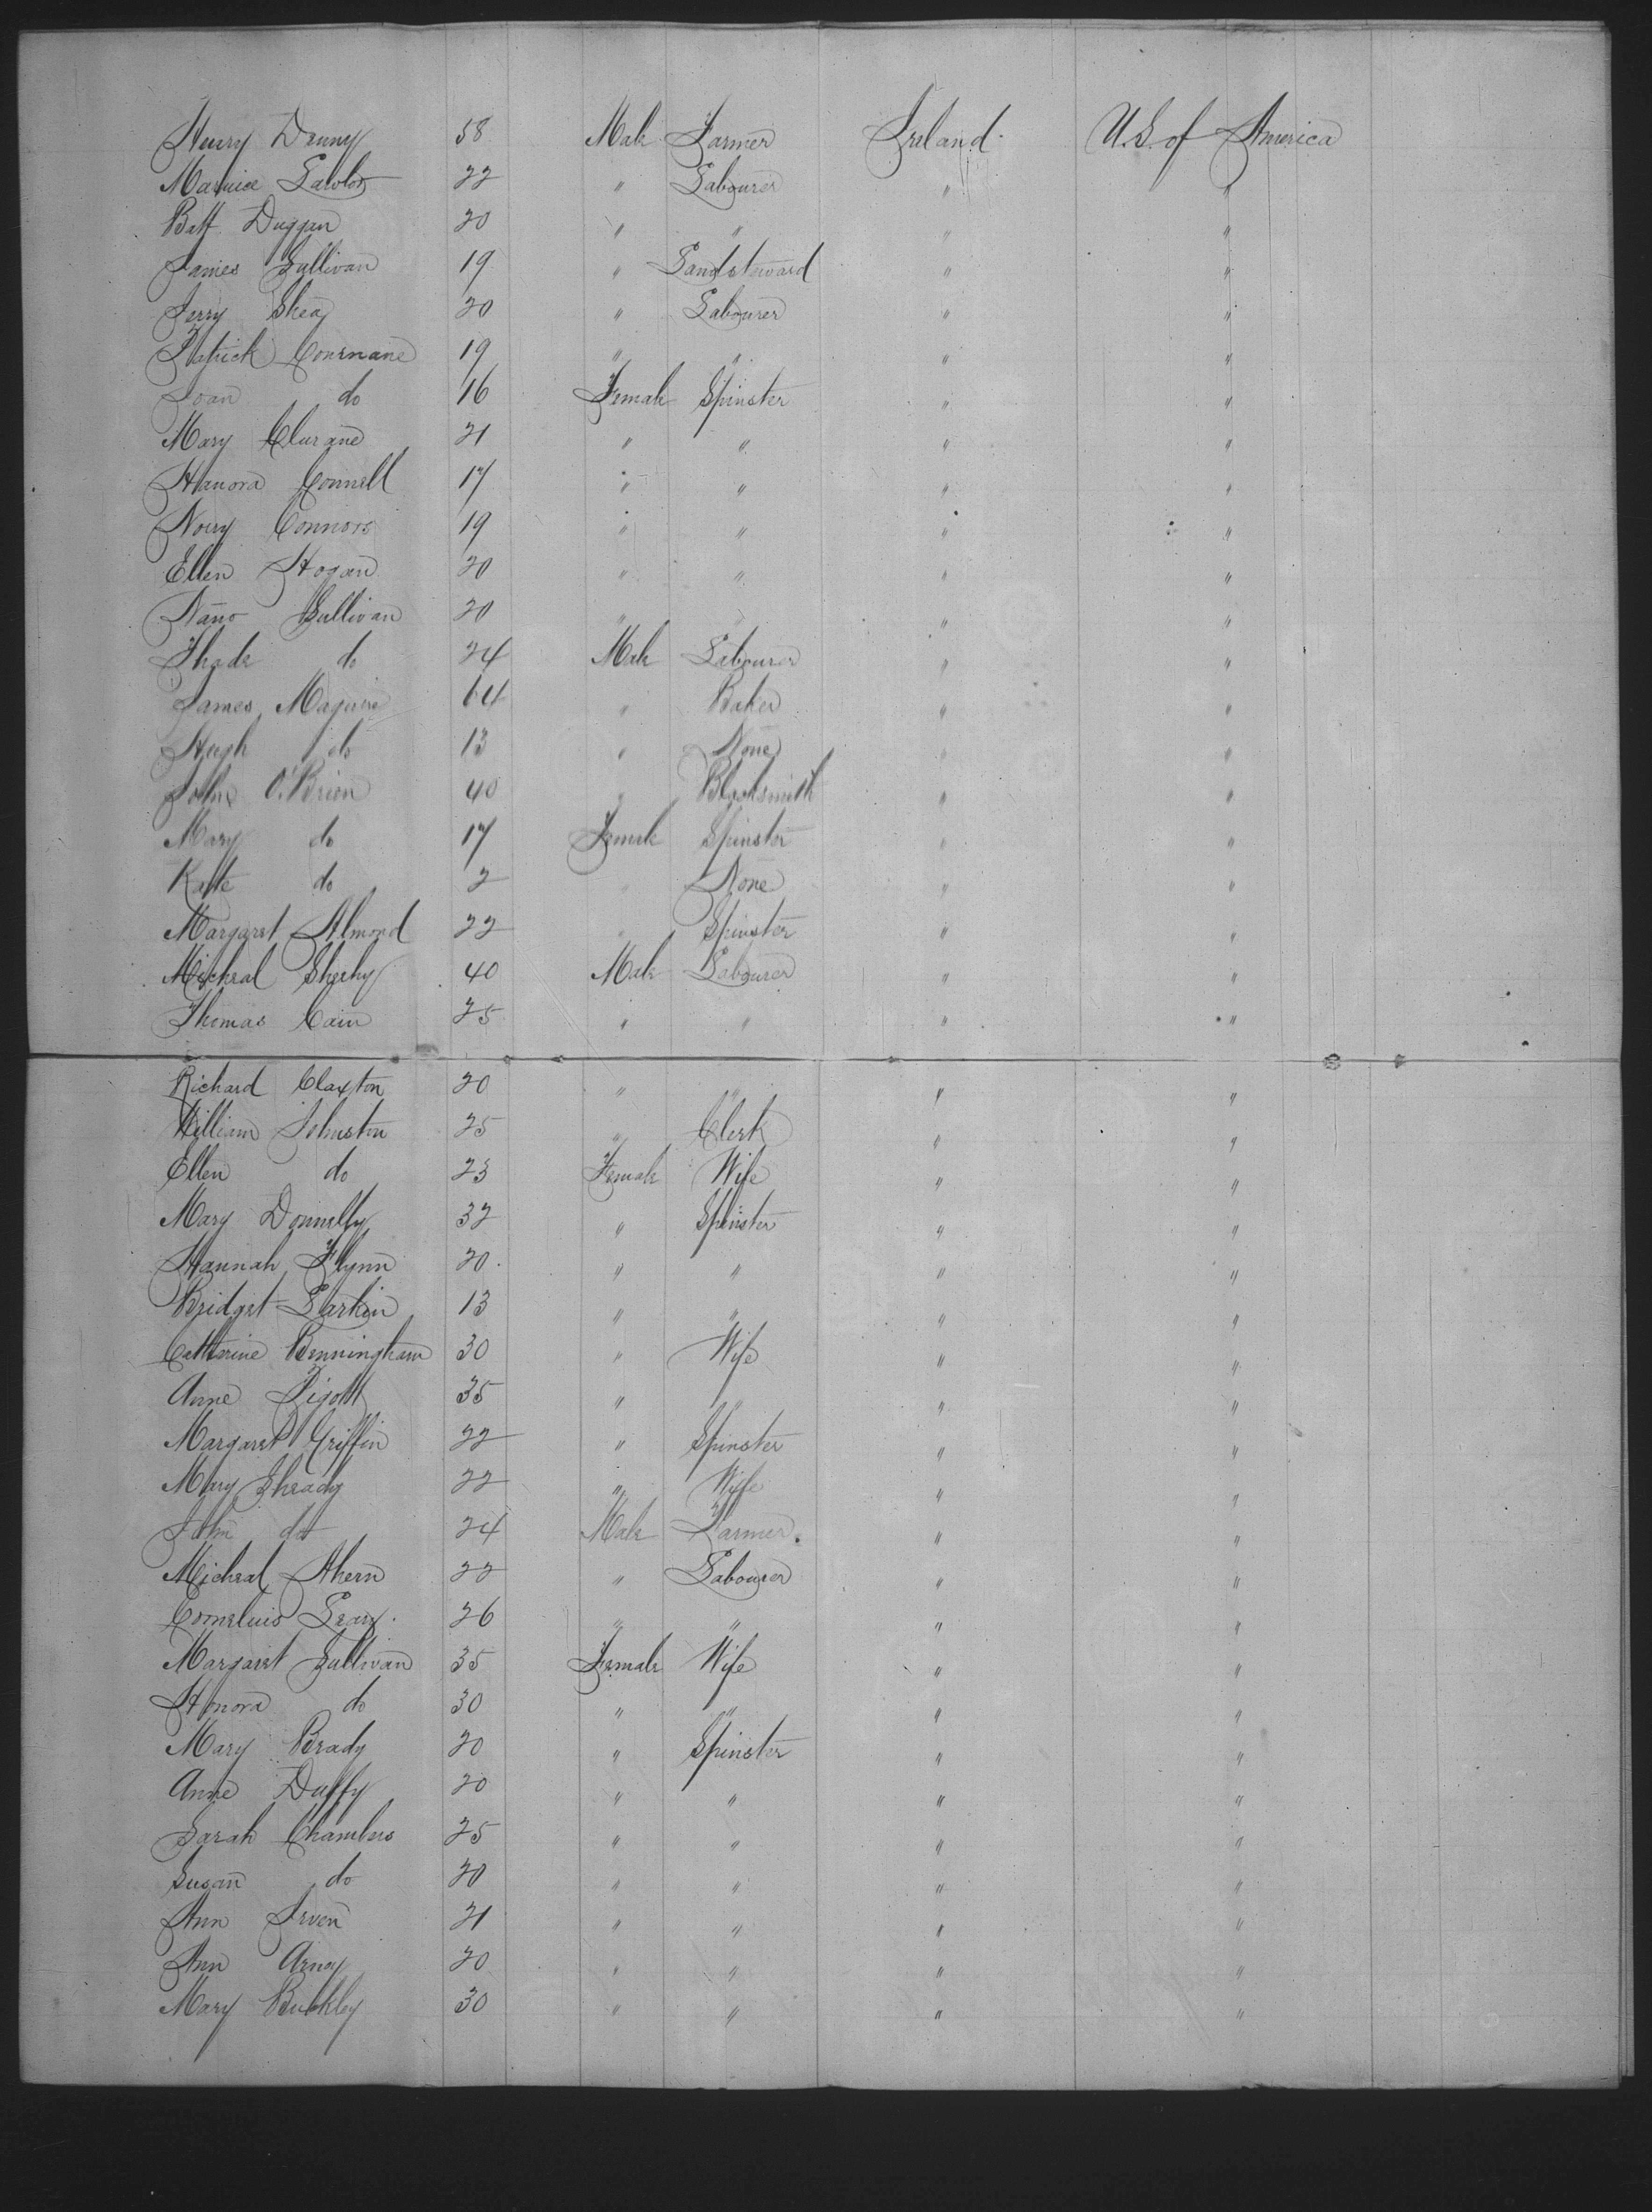 Henry Denny 58 Male Farmer Ireland U.S. of America
Maurice Lawlor 22 " Labourer " "
Batt Duggan 20 " " " "
James Sullivan 19 " Landsteward " "
Jerry Shea 20 " Labourer " "
Patrick Cournane 19 " " " "
Joan do 16 Female Spinster " "
Mary Clurane 21 " " " "
Hanora Connell 17 " " " "
Nory Connors 19 " " " "
Ellen Hogan 20 " " " "
Nano Sullivan 20 " " " "
Thade do 24 Male Labourer " "
James Maguire 64 " Baker " "
Hugh do 13 " None " "
John O'Brien 40 " Blacksmith " "
Mary do 17 Female Spinster " "
Kate do 2 " None " "
Margaret Almond 22 " Spinster " "
Michael Sheehy 40 Male Labourer " "
Thomas Cain 25 " " " "
Richard Claxton 20 " " " "
William Johnston 25 " Clerk " "
Ellen do 23 Female Wife " "
Mary Donnelly 32 " Spinster " "
Hannah Flynn 20 " " " "
Bridget Larkin 13 " " " "
Catherine Benningham 30 " Wife " "
Anne Pigott 35 " " " "
Margaret Griffin 22 " Spinster " "
Mary Shready 22 " Wife " "
John do 24 Male Farmer " "
Michael Ahern 22 " Labourer " "
Cornelius Leary 26 " " " "
Margaret Sullivan 35 Female Wife " "
Honora do 30 " " " "
Mary Brady 20 " Spinster " "
Anne Duffy 20 " " " "
Sarah Chambers 25 " " " "
Susan do 20 " " " "
Ann Irven 21 " " " "
Ann 20 " " " "
Mary Buckley 30 " " " "